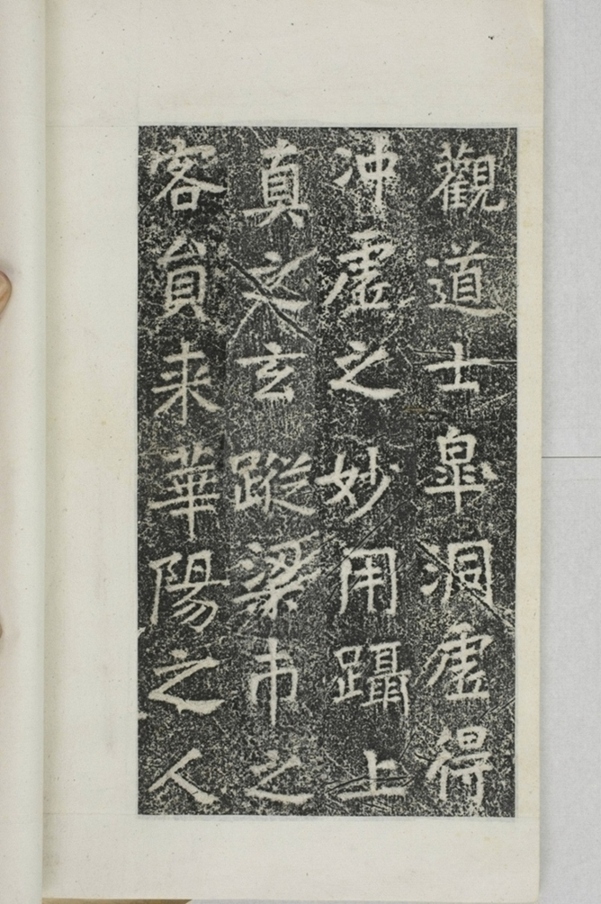 觀道士皐洞虛得
沖虛之妙用躡上
真之玄蹤梁市之
客貟来華陽之人